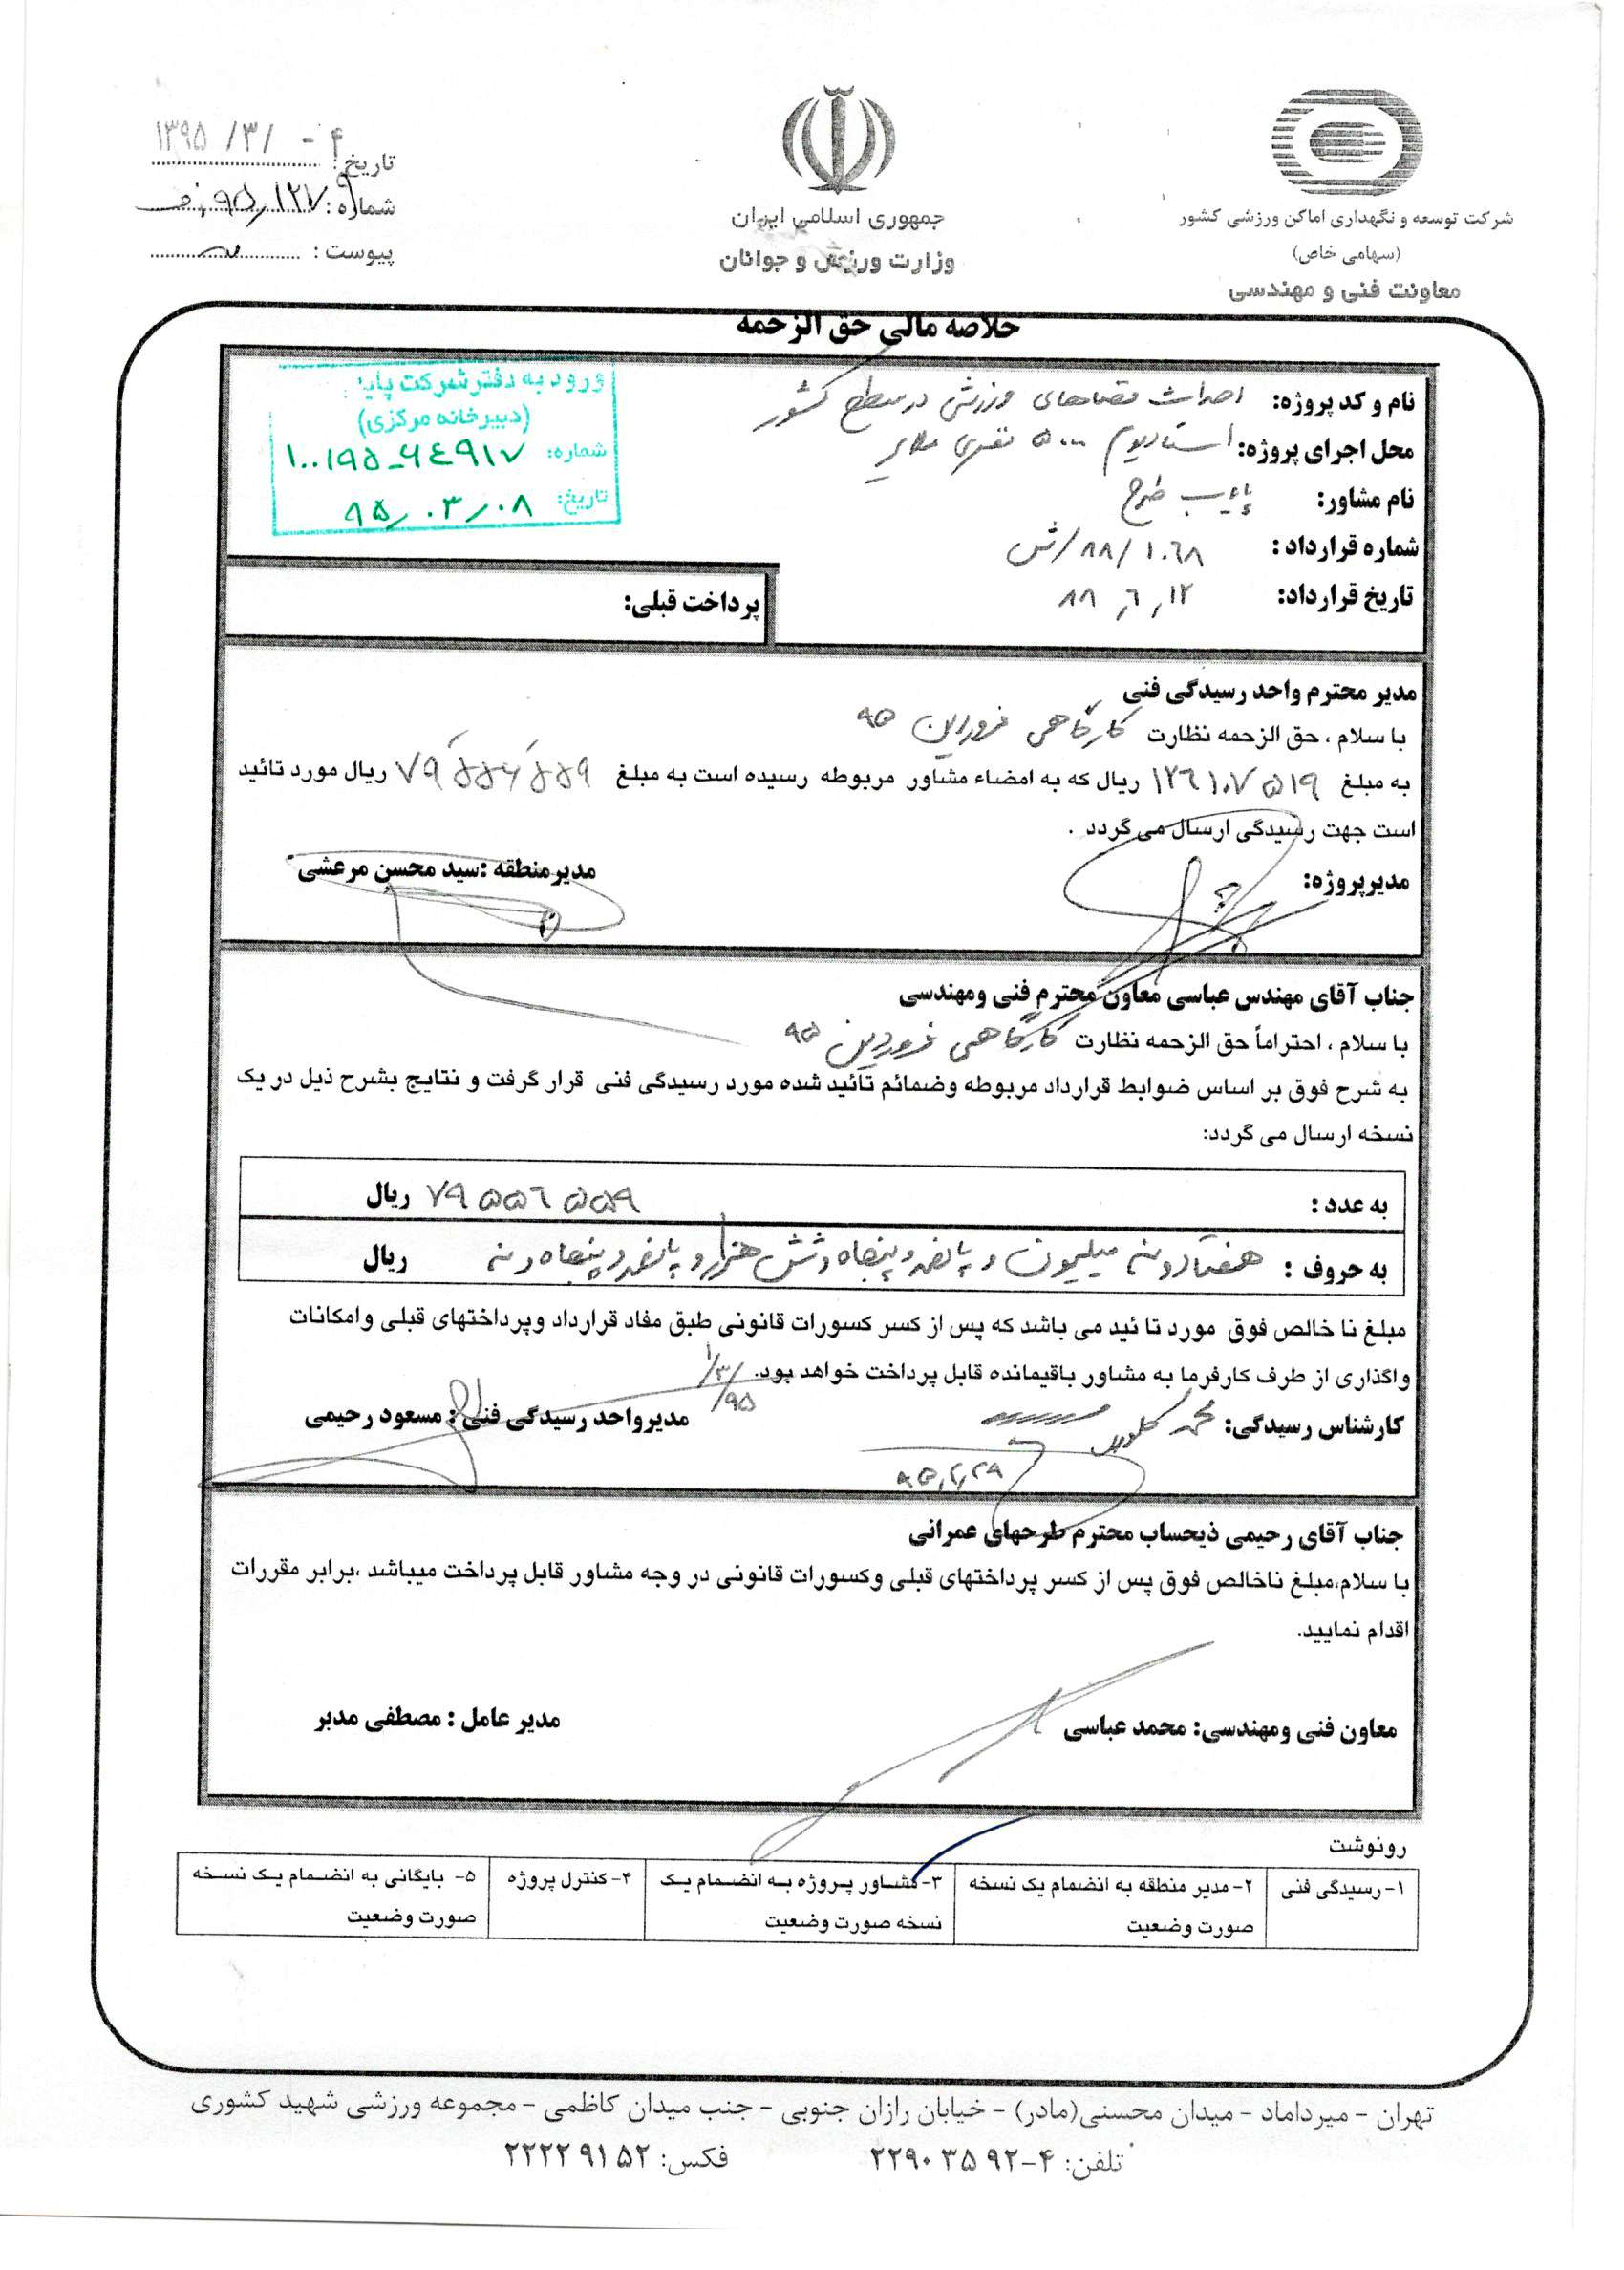 شرکت توسعه و نگهداری اماکن ورزشی کشور
(سهامی خاص)
معاونت فنی و مهندسی
جمهوری اسلامی ایران
وزارت ورزش و جوانان
تاریخ: ۱۳۹۵/۳/۰۴
شماره:
پیوست:
خلاصه مالی حق الزحمه
ورود به دفتر شرکت
(دبیرخانه مرکزی)
شماره: ۱۰۰۱۹۵-۶۴۹۱۷
تاریخ: ۹۵/۰۳/۰۸
نام و کد پروژه: احداث فضاهای ورزشی در سطح کشور
محل اجرای پروژه: استادیوم ۵۰۰۰ نفری ملایر
نام مشاور: طرح
شماره قرارداد: ۸۸/۱۰۶۸/ش
تاریخ قرارداد: ۸۸,۶,۱۲
پرداخت قبلی:
مدیر محترم واحد رسیدگی فنی
با سلام ، حق الزحمه نظارت کارگاهی فروردین ۹۵
به مبلغ ۱۲۶۱۰۷۵۱۹ ریال که به امضاء مشاور مربوطه رسیده است به مبلغ ۷۹۵۵۶۵۵۹ ریال مورد تائید
است جهت رسیدگی ارسال می گردد .
مدیرپروژه:
مدیرمنطقه :سید محسن مرعشی
جناب آقای مهندس عباسی معاون محترم فنی ومهندسی
با سلام ، احتراماً حق الزحمه نظارت کارگاهی فروردین ۹۵
به شرح فوق بر اساس ضوابط قرارداد مربوطه وضمائم تائید شده مورد رسیدگی فنی قرار گرفت و نتایج بشرح ذیل در یک
نسخه ارسال می گردد:
به عدد : ۷۹۵۵۶۵۵۹ ریال
به حروف : هفتادونه میلیون و پانصدوپنجاه وشش هزارو پانصدوپنجاه ونه ریال
مبلغ نا خالص فوق مورد تا ئید می باشد که پس از کسر کسورات قانونی طبق مفاد قرارداد وپرداختهای قبلی وامکانات
واگذاری از طرف کارفرما به مشاور باقیمانده قابل پرداخت خواهد بود.
۹۵/۳/۱
کارشناس رسیدگی: محمد
مدیرواحد رسیدگی فنی : مسعود رحیمی
۹۵,۲,۲۹
جناب آقای رحیمی ذیحساب محترم طرحهای عمرانی
با سلام،مبلغ ناخالص فوق پس از کسر پرداختهای قبلی وکسورات قانونی در وجه مشاور قابل پرداخت میباشد ،برابر مقررات
اقدام نمایید.
معاون فنی ومهندسی: محمد عباسی
مدیر عامل : مصطفی مدبر
رونوشت
۱-رسیدگی فنی
۲-مدیر منطقه به انضمام یک نسخه
صورت وضعیت
۳-مشاور پروژه به انضمام یک
نسخه صورت وضعیت
۴-کنترل پروژه
۵- بایگانی به انضمام یک نسخه
صورت وضعیت
تهران - میرداماد - میدان محسنی(مادر) - خیابان رازان جنوبی - جنب میدان کاظمی - مجموعه ورزشی شهید کشوری
تلفن: ۴-۲۲۹۰۳۵۹۲ فکس: ۲۲۲۲۹۱۵۲